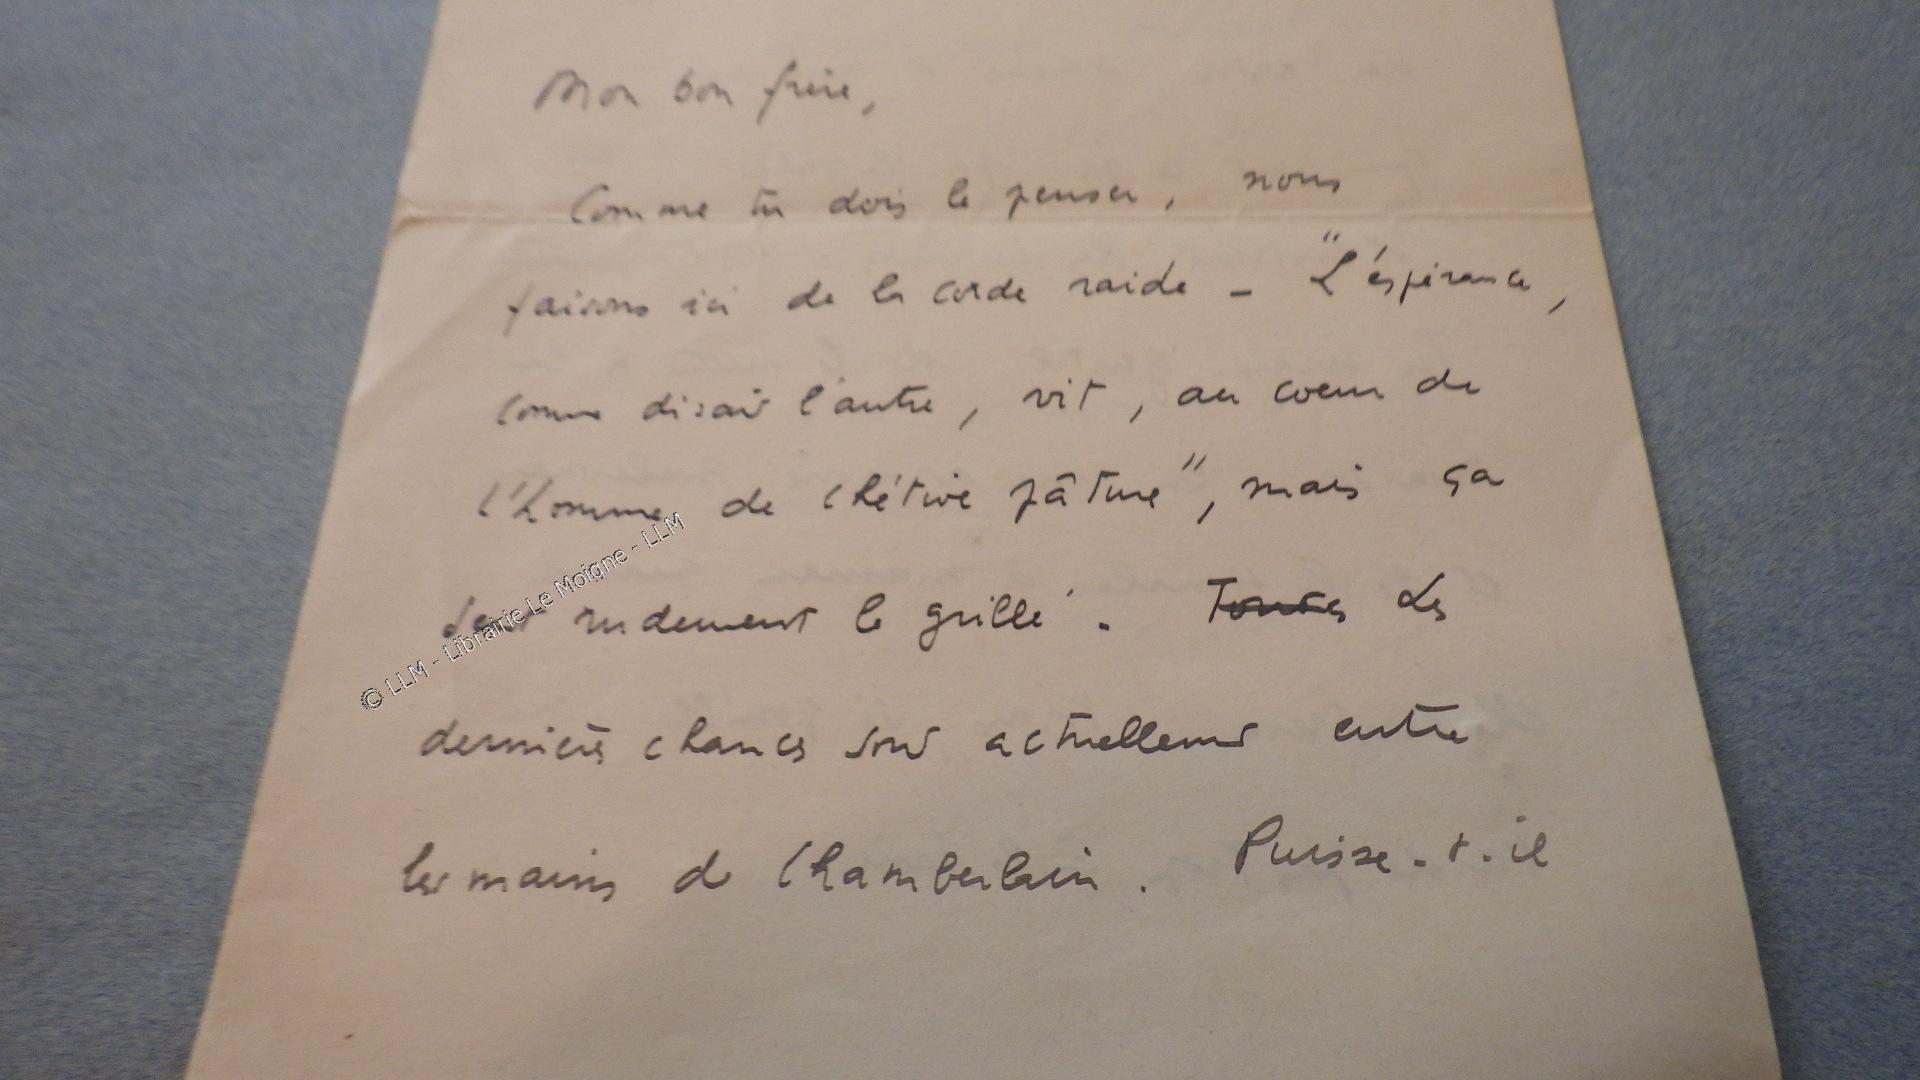 Mon bon frère,
Comme tu dois le penser, nous
faisons ici de la corde raide - "L'espérance,
comme disait l'autre, vit, au coeur de
l'homme de chétive pâture", mais ça
sent rudement le grillé. Toutes Les
dernières chances sont actuellement entre
les mains de Chamberlain. Puisse-t-il
© LLM - Librairie Le Moigne - LLM